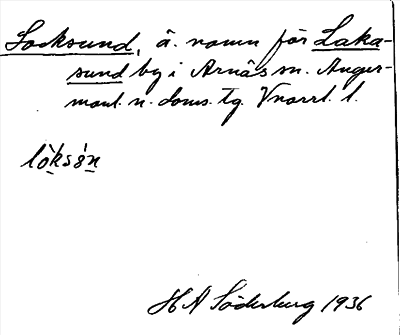 Locksund, ä. namn för Laka-
sund by i Arnäs sn. Anger-
manl. n. doms. tg. Vnorrl. l.
lò̱ksó̱n
H A Söderberg 1936